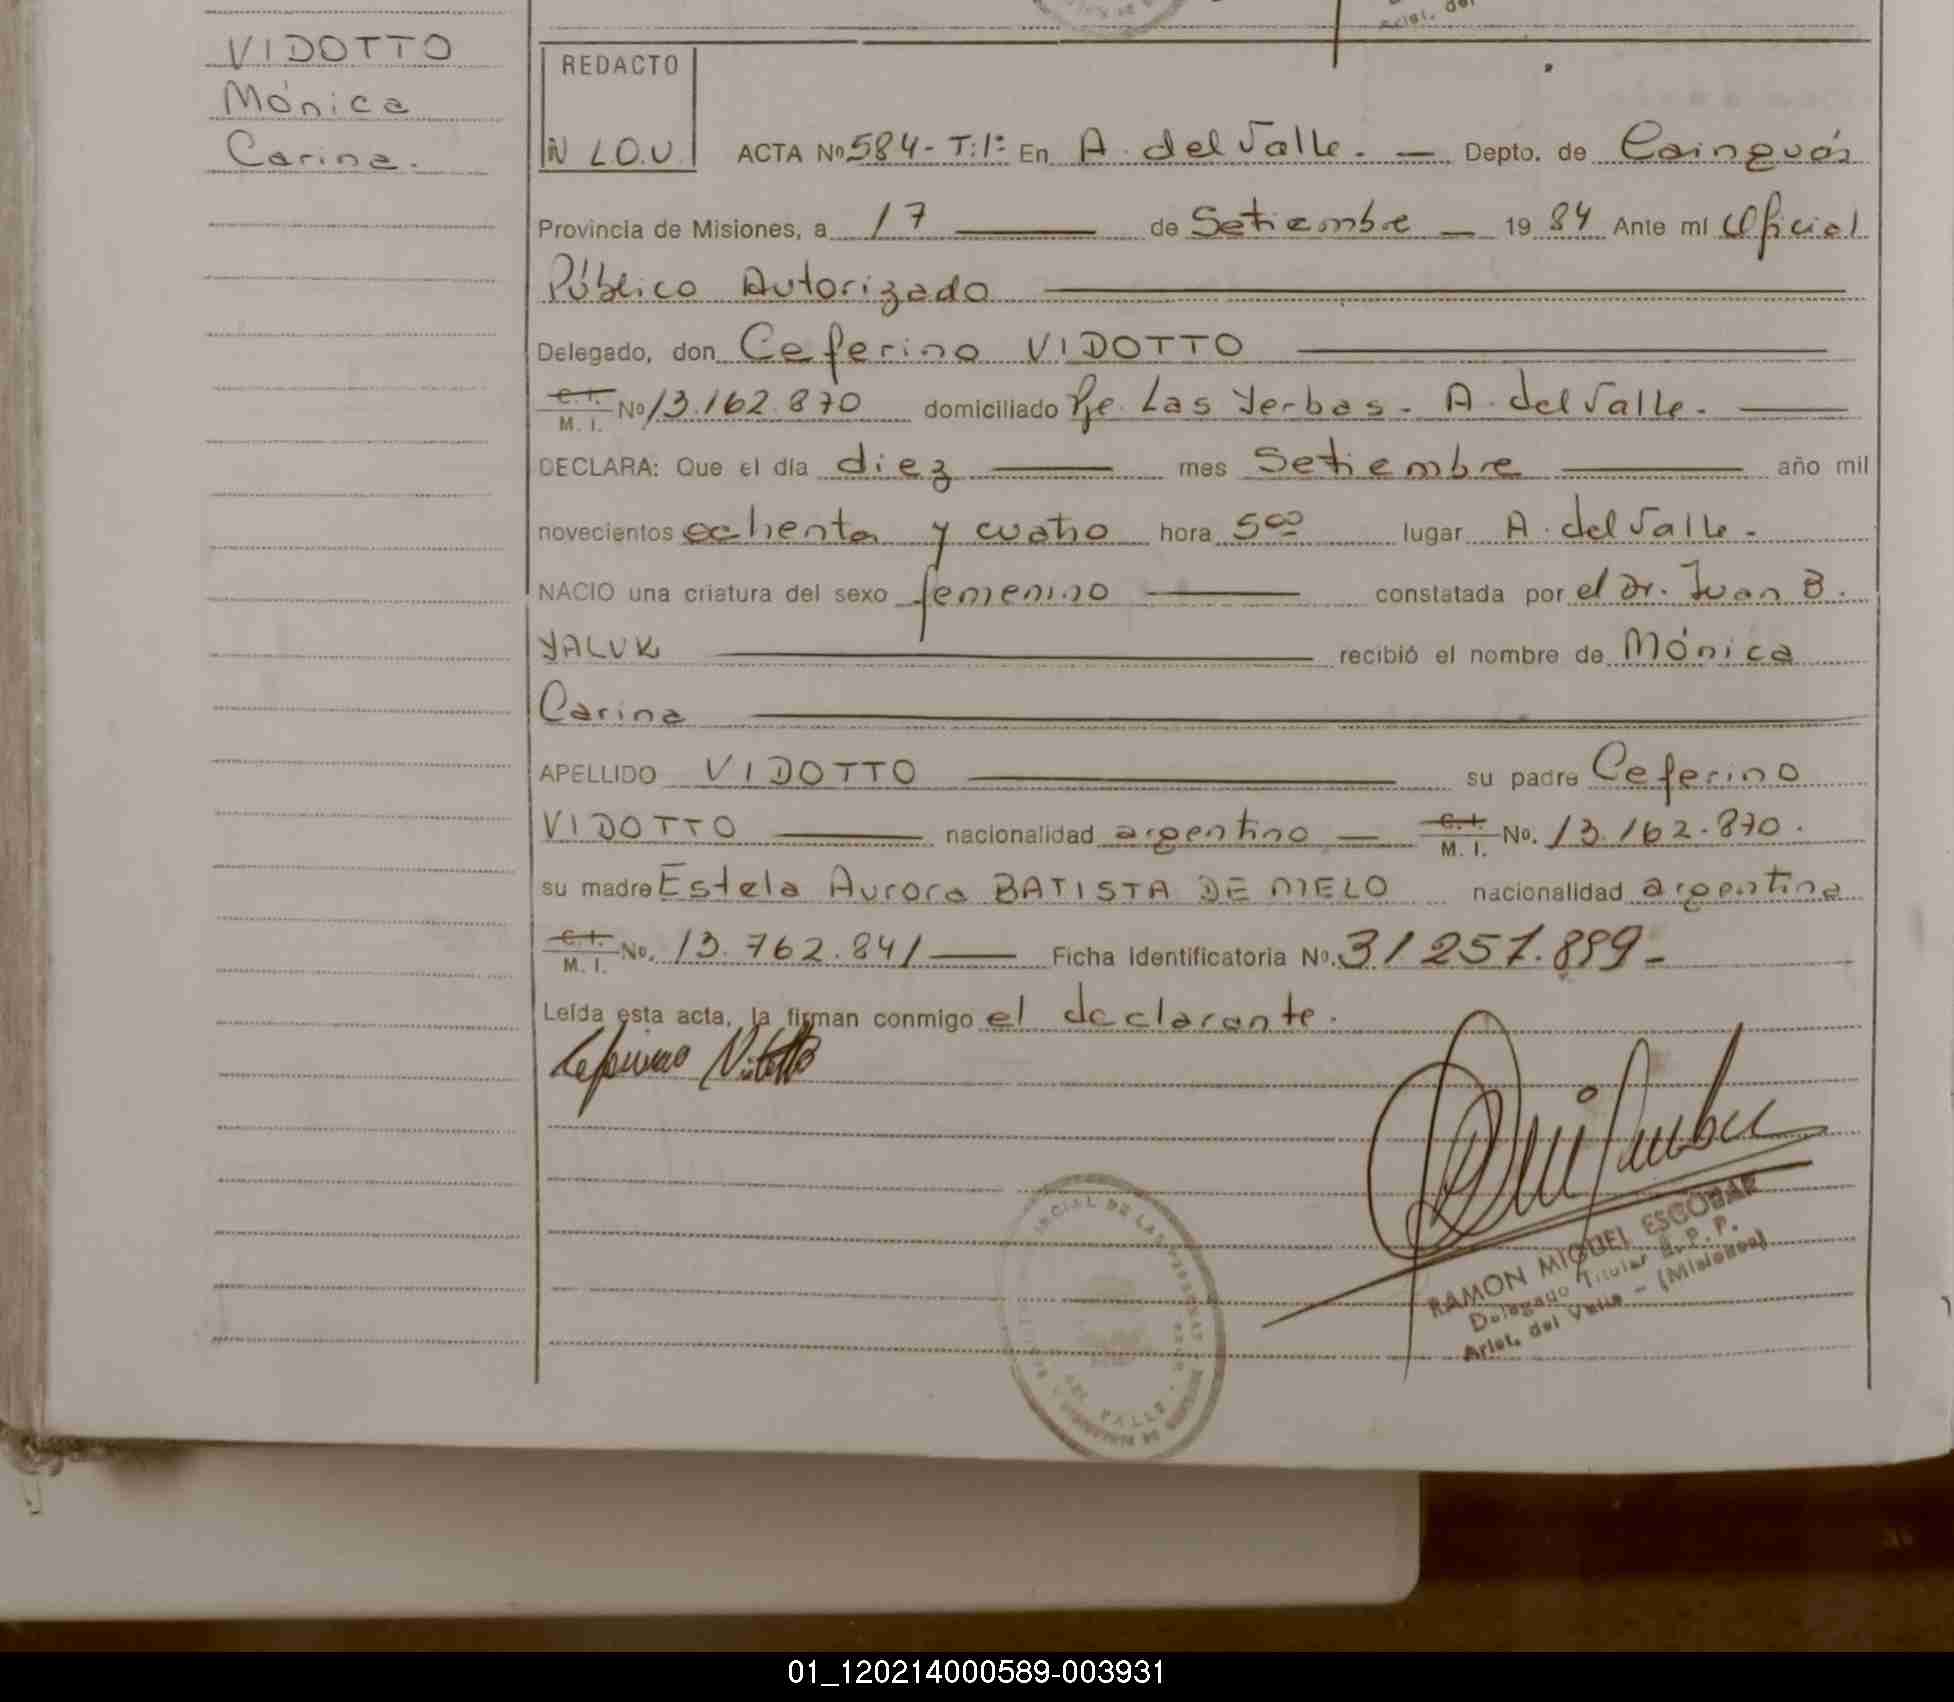 VIDOTTO
Mónica
Carina.
REDACTO
ACTA Nº 584- T:1º En A. del Valle. — Depto. de Cainguás
Provincia de Misiones, a 17 de Setiembre — 1984 Ante mi Oficial
Público Autorizado
Delegado, don Ceferino VIDOTTO
C. I.
M. I. Nº 13.162.870 domiciliado Pje. Las Yerbas - A. del Valle.
DECLARA: Que el día diez mes Setiembre año mil
novecientos ochenta y cuatro hora 5⁰⁰ lugar A. del Valle.
NACIO una criatura del sexo femenino constatada por el Dr. Juan B.
YALUK recibió el nombre de Mónica
Carina
APELLIDO VIDOTTO su padre Ceferino
VIDOTTO nacionalidad argentino — C. I.
M. I. No. 13.162.870.
su madre Estela Aurora BATISTA DE MELO nacionalidad argentina
C. I.
M. I. No. 13.762.841 Ficha Identificatoria Nº. 31257.899-
Leída esta acta, la firman conmigo el declarante.
Ceferino Vidotto
RAMON MIGUEL ESCOBAR
Delegado Titular R. P. P.
Arist. del Valle - (Misiones)
01_120214000589-003931